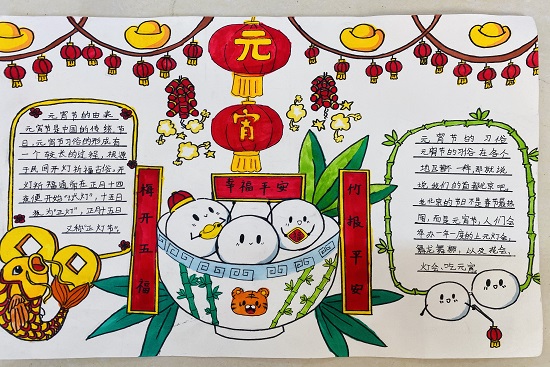 元
宵
幸福平安
梅开五福
竹报平安
元宵节的由来
元宵节是中国的传统节
日,元宵节习俗的形成有
一个较长的过程,根源
于民间开灯祈福古俗,开
灯祈福通常在正月十四
夜便开始"试灯",十五日
夜为"正灯",正月十五日
又称"正灯节"。
元宵节的习俗
元宵节的习俗在各个
地区都一样,那就说
说,我们的首都北京吧。
北京的节日不是春节最热
闹,而是元宵节,人们会
举办一年一度的上元灯会,
以及观会,
灯会、吃元宵。